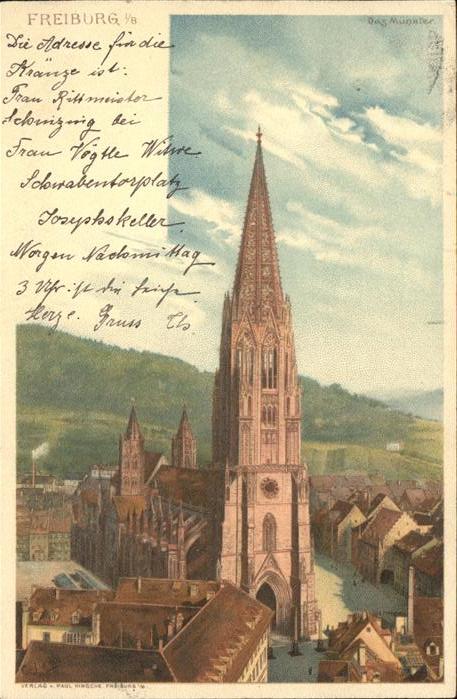 FREIBURG i/B
Das Münster.
Die Adresse für die
Kränze ist:
Frau Rittmeister
bei
Frau Vögtle Witwe
Schwabentorplatz
Josephskeller.
Morgen Nachmittag
3 Uhr ist die
Gruss Th
VERLAG v. PAUL HINSCHE, FREIBURG i/B.